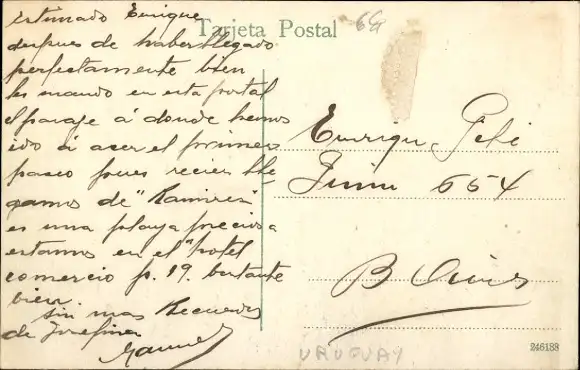 Tarjeta Postal
69
estimado Enrique
despues de haber llegado
perfectamente bien
les mando en esta postal
el paraje á donde hemos
ido a aser el primer
paseo pues recien lle
gamos de "Ramirez"
es una playa preciosa
estamos en el "hotel
comercio p. 19. bastante
bien.
sin mas Recuerdos
de Josefina
Enrique
Junin 654
B Aires
URUGUAY
246188